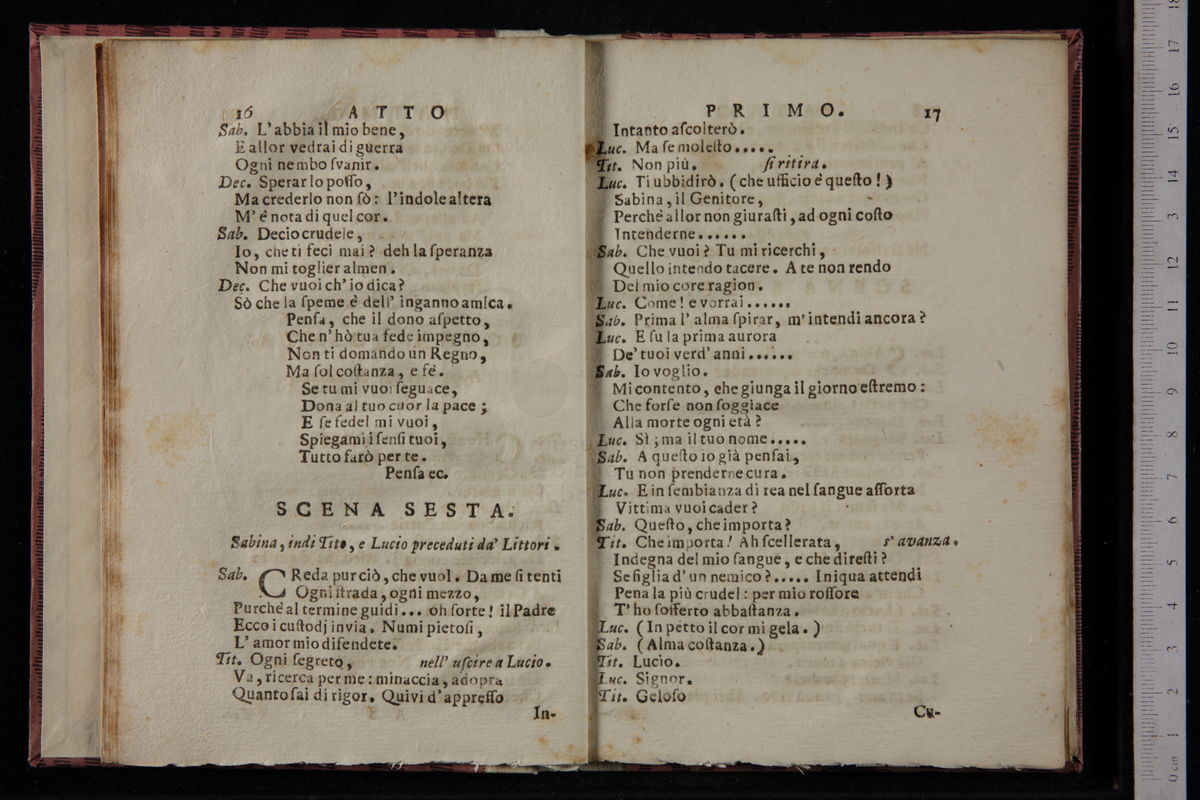 16 ATTO
Sab. L'abbia il mio bene,
E allor vedrai di guerra
Ogni nembo ſvanir.
Dec. Sperar lo poſſo,
Ma crederlo non ſò: l'indole altera
M' è nota di quel cor.
Sab. Decio crudele,
Io, che ti feci mai? deh la ſperanza
Non mi toglier almen.
Dec. Che vuoi ch' io dica?
Sò che la ſpeme è dell' inganno amica.
Penſa, che il dono aſpetto,
Che n' hò tua fede impegno,
Non ti domando un Regno,
Ma ſol coſtanza, e fè.
Se tu mi vuoi ſeguace,
Dona al tuo cuor la pace;
E ſe fedel mi vuoi,
Spiegami i ſenſi tuoi,
Tutto farò per te.
Penſa ec.
SCENA SESTA.
Sabina, indi Tito, e Lucio preceduti da' Littori.
Sab. CReda pur ciò, che vuol. Da me ſi tenti
Ogni ſtrada, ogni mezzo,
Purchè al termine guidi... oh ſorte! il Padre
Ecco i cuſtodj invia. Numi pietoſi,
L' amor mio difendete.
Tit. Ogni ſegreto, nell' uſcire a Lucio.
Va, ricerca per me: minaccia, adopra
Quanto ſai di rigor. Quivi d' appreſſo
In-
PRIMO. 17
Intanto aſcolterò.
Luc. Ma ſe moleſto.....
Tit. Non più. ſi ritira.
Luc. Ti ubbidirò. (che ufficio è queſto!)
Sabina, il Genitore,
Perchè allor non giuraſti, ad ogni coſto
Intenderne......
Sab. Che vuoi? Tu mi ricerchi,
Quello intendo tacere. A te non rendo
Del mio core ragion.
Luc. Come! e vorrai......
Sab. Prima l' alma ſpirar, m' intendi ancora?
Luc. E ſu la prima aurora
De' tuoi verd' anni......
Sab. Io voglio.
Mi contento, che giunga il giorno eſtremo:
Che forſe non ſoggiace
Alla morte ogni età?
Luc. Sì; ma il tuo nome.....
Sab. A queſto io già penſai,
Tu non prenderne cura.
Luc. E in ſembianza di rea nel ſangue aſſorta
Vittima vuoi cader?
Sab. Queſto, che importa?
Tit. Che importa! Ah ſcellerata, s' avanza.
Indegna del mio ſangue, e che direſti?
Se figlia d' un nemico?..... Iniqua attendi
Pena la più crudel: per mio roſſore
T' ho ſofferto abbaſtanza.
Luc. (In petto il cor mi gela.)
Sab. (Alma coſtanza.)
Tit. Lucio.
Luc. Signor.
Tit. Geloſo
Cu-